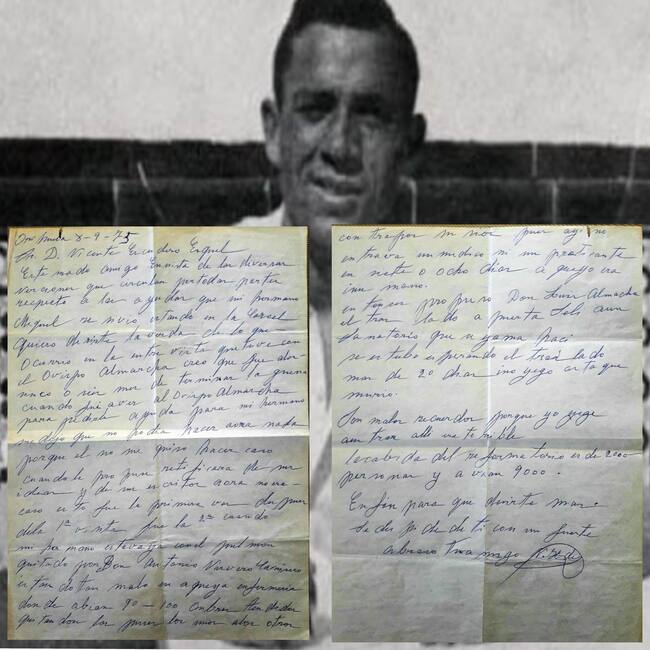 Orihuela 8-9-75
Sr. D. Vicente Escudero Esquel
Este mado amigo en vista de las diversas
verciones que circulan por todas partes
respecto a las ayudas que mi hermano
Miguel se nicó estando en la Carsel
quiero desirte la verda de lo que
ocurrio en la entre virta que tuve con
el Ovispo Almarcha creo que fue dos
meses o seis mes de terminar la guerra
cuando fue aver al Ovispo Almarcha
para pedirle ayuda para mi hermano
me dijo que no podia hacer aora nada
porque el no me quiso hacer caso
cuando le pro puse retificara de sus
ideas y de sus escritos aora no era
caso esto fue la primera ves despues
dela 1ª visita fue la 2ª cuando
mi hermano estava ya con el pulmon
quitado por Don Antonio
estando tan malo en aqueya enfermeria
donde abian 90-100 onbres
que tan don los pusos los unos alos otros
con tra por
en trava un medico ni un praticante
en siete o ocho dias a quejo era
inu mano.
en tonses propuso Don Luis Almarcha
el tras lado a puerta Seli aun
Sanatorio que se yama haci
se es tubo esperando el tras lado
mas de 20 dias ino yego asta que
murio.
Son malos recuerdos porque yo yege
aun tras alli era terrible
la cabida del reformatorio es de 2000
personas y a vian 9000.
En fin para que desirte mas.
Se des pi de de ti con un fuerte
abraso tu amigo